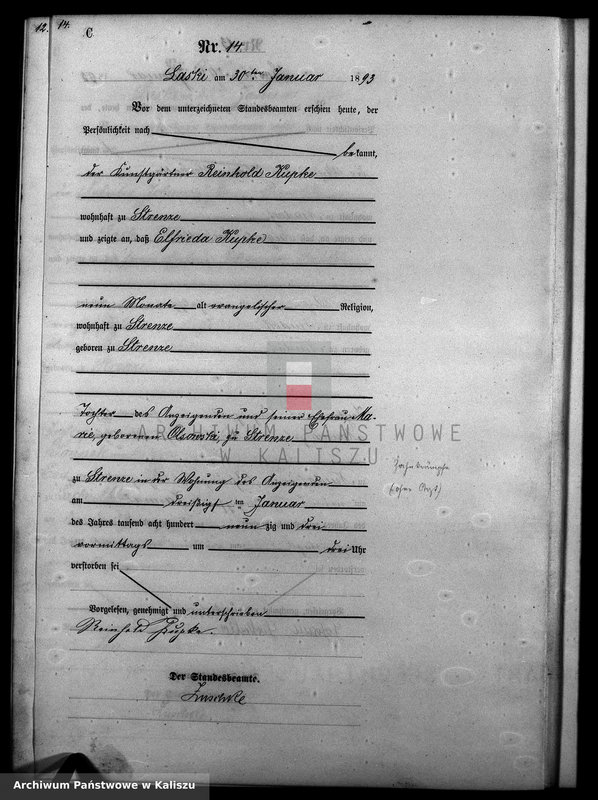 12. 14.
C
Nr. 14.
Laski am 30ten Januar 1893
Vor dem unterzeichneten Standesbeamten erschien heute, der
Persönlichkeit nach
bekannt,
der Kunstgärtner Reinhold Kupke
wohnhaft zu Strenze
und zeigte an, daß Elfrieda Kupke
neun Monate alt evangelischer Religion,
wohnhaft zu Strenze
geboren zu Strenze
Tochter des Anzeigenden und seiner Ehefrau Ma-
rie, geborenen Olsowska, zu Strenze
ARCHIWUM PAŃSTWOWE
W KALISZU
zu Strenze in der Wohnung des Anzeigenden
am dreißigsten Januar
des Jahres tausend acht hundert neunzig und drei
vormittags um drei Uhr
verstorben sei
Zahnkrämpfe
(ohne Arzt)
Vorgelesen, genehmigt und unterschrieben
Reinhold Kupke.
Der Standesbeamte.
Archiwum Państwowe w Kaliszu